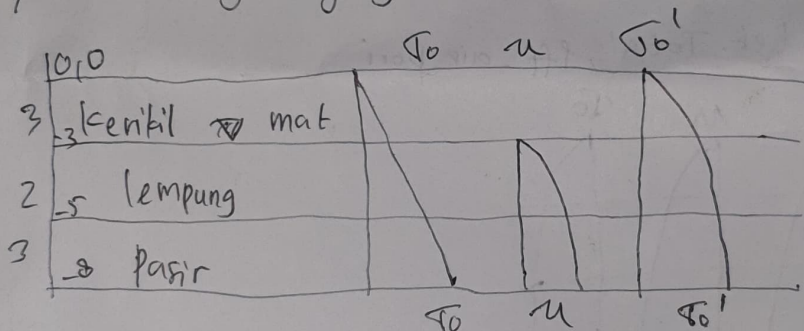 0,0 σo u σo'
3 -3 kerikil ∇ mat
2 -5 lempung
3 -8 Pasir
σo u σo'